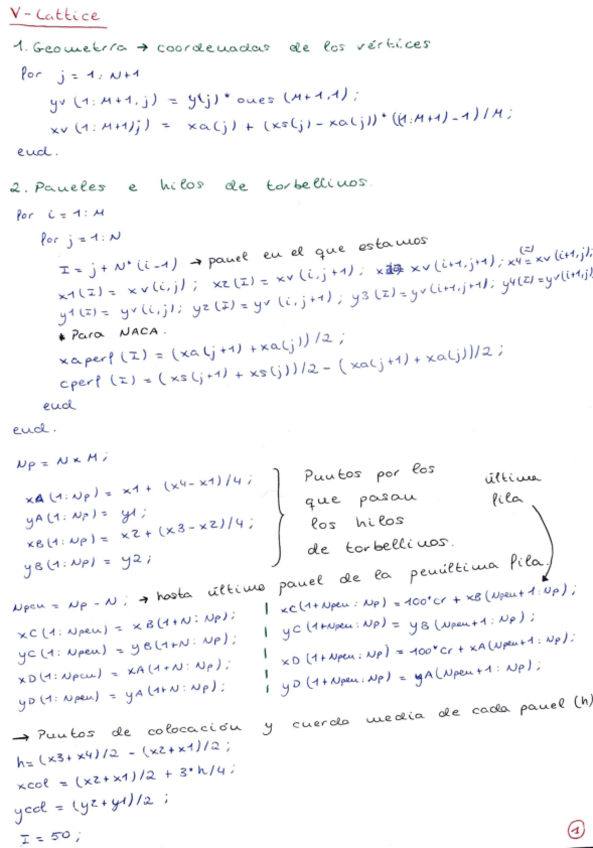 V-Lattice
1. Geometría → coordenadas de los vértices
for j = 1:N+1
yv (1:M+1, j) = y(j)* ones (M+1,1);
xv (1:M+1,j) = xa(j) + (xs(j) - xa(j))* ((1:M+1)-1)/M;
end.
2. Paneles e hilos de torbellinos.
for i = 1:M
for j = 1:N
I = j + N* (i-1) → panel en el que estamos
x1(I) = xv(i,j); x2(I) = xv(i,j+1); xv(i+1,j+1); x4(I) = xv(i+1,j);
y1(I) = yv(i,j); y2(I) = yv(i,j+1); y3(I) = yv(i+1,j+1); y4(I) = yv(i+1,j)
* Para NACA.
xaperf (I) = (xa(j+1) + xa(j))/2;
cperf (I) = (xs(j+1) + xs(j))/2 - (xa(j+1) + xa(j))/2;
end
end.
Np = N x M;
xA (1:Np) = x1 + (x4-x1)/4;
yA (1:Np) = y1;
xB (1:Np) = x2 + (x3-x2)/4;
yB (1:Np) = y2;
Puntos por los
que pasan
los hilos
de torbellinos.
última
fila
Npen = Np - N; → hasta último panel de la penúltima fila.
xC (1:Npen) = xB (1+N:Np);
yC (1:Npen) = yB (1+N:Np);
xD (1:Npen) = xA (1+N:Np);
yD (1:Npen) = yA (1+N:Np);
xC (1+Npen:Np) = 100*cr + xB (Npen+1:Np);
yC (1+Npen:Np) = yB (Npen+1:Np);
xD (1+Npen:Np) = 100*cr + xA (Npen+1:Np);
yD (1+Npen:Np) = yA (Npen+1:Np);
→ Puntos de colocación y cuerda media de cada panel (h)
h = (x3+x4)/2 - (x2+x1)/2;
xcol = (x2+x1)/2 + 3*h/4;
ycol = (y2+y1)/2;
I = 50;
1